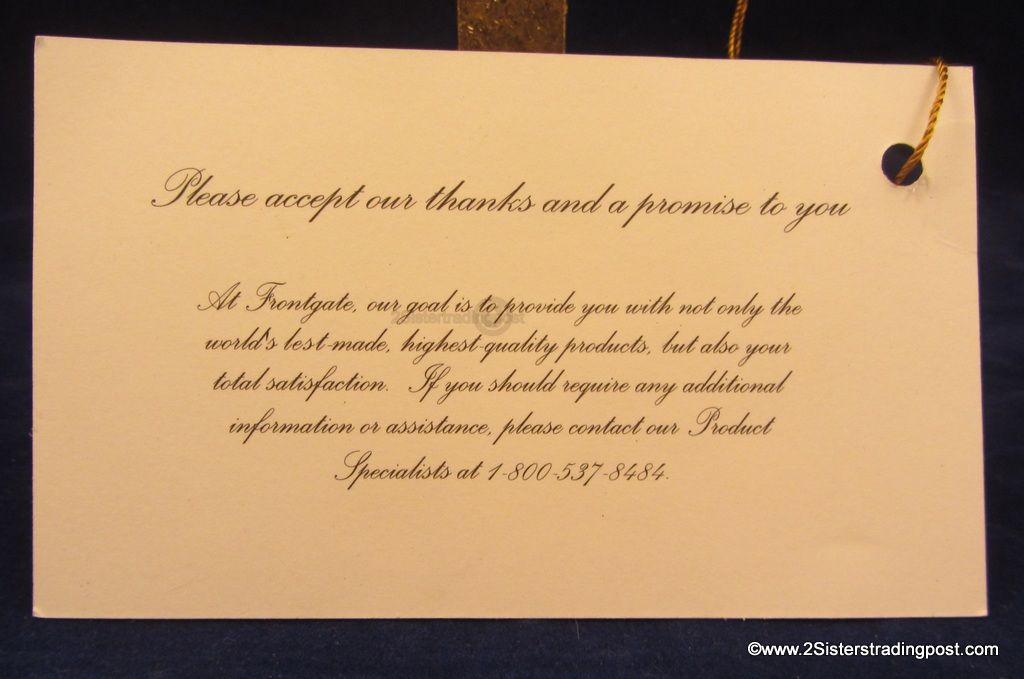 Please accept our thanks and a promise to you
At Frontgate, our goal is to provide you with not only the
world's best-made, highest-quality products, but also your
total satisfaction. If you should require any additional
information or assistance, please contact our Product
Specialists at 1-800-537-8484.
2Sisterstradingpost
©www.2Sisterstradingpost.com